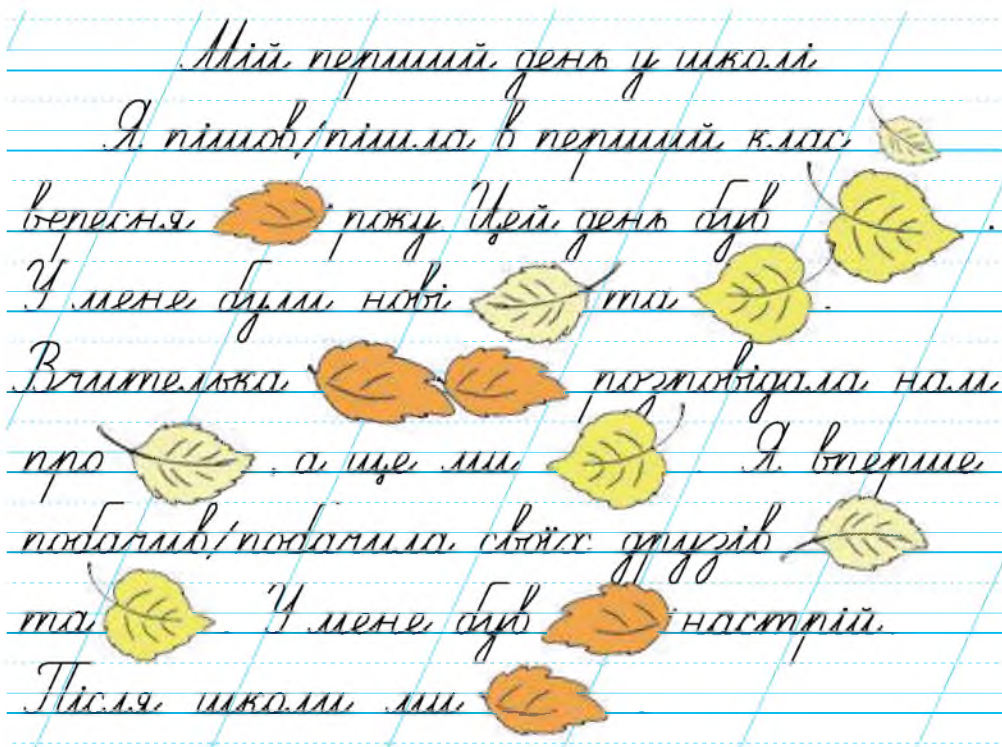 Мій перший день у школі
Я пішов/пішла в перший клас
вересня року Цей день був .
У мене були нові та .
Вчителька розповідала нам
про , а ще ми . Я вперше
побачив/побачила своїх друзів
та . У мене був настрій.
Після школи ми .